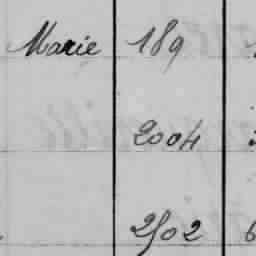 Marie 189
2004
2502